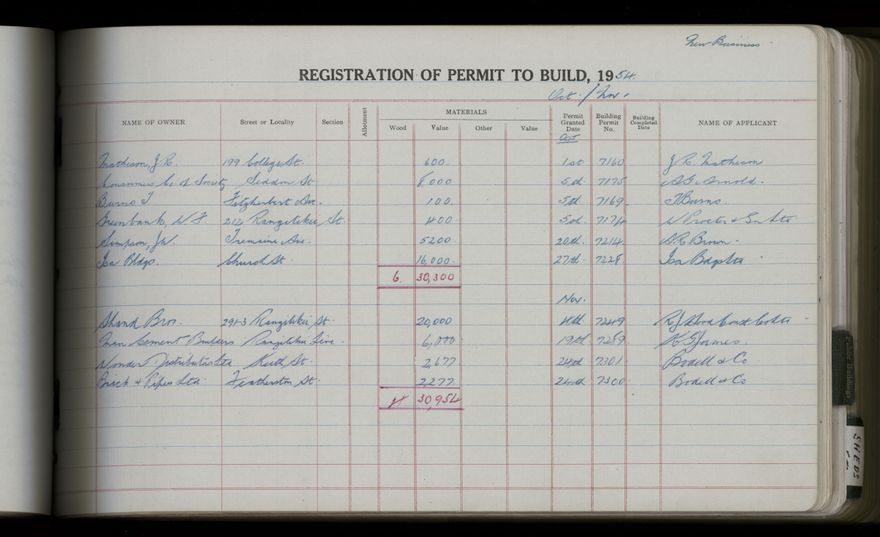 New Business
REGISTRATION OF PERMIT TO BUILD, 1954.
Oct. / Nov.
NAME OF OWNER Street or Locality Section Allotment MATERIALS Wood Value Other Value Permit Granted Date Building Permit No. Building Completed Date NAME OF APPLICANT
Oct
Matheson, J R. 179 College St. 600. 1st 7160 J R. Matheson
Consumers Co. op Society Seddon St 8000 5th. 7175 Arnold.
Burns T Fitzherbert Ave. 100. 5th 7169 T Burns
Greenbank, W F. 212 Rangitikei St. 400 5th. 7174 W Procter & Son Ltd
Simpson, JW Tremaine Ave. 5200 20th. 7214 Brown.
Isa Bldgs. Church St. 16,000. 27th. 7228 Isa Bdgs Ltd
6. 30,300
Nov.
Shand Bros. 291-3 Rangitikei St. 20,000 4th. 7249
Cement Builders Rangitikei Line. 6,000 19th. 7289
Wonder Distributors Ltd Keith St. 2,677 24th 7301 Bodell & Co
Brick & Pipes Ltd Featherston St. 2277 24th. 7300 Bodell & Co
4 30,954
SHEDS